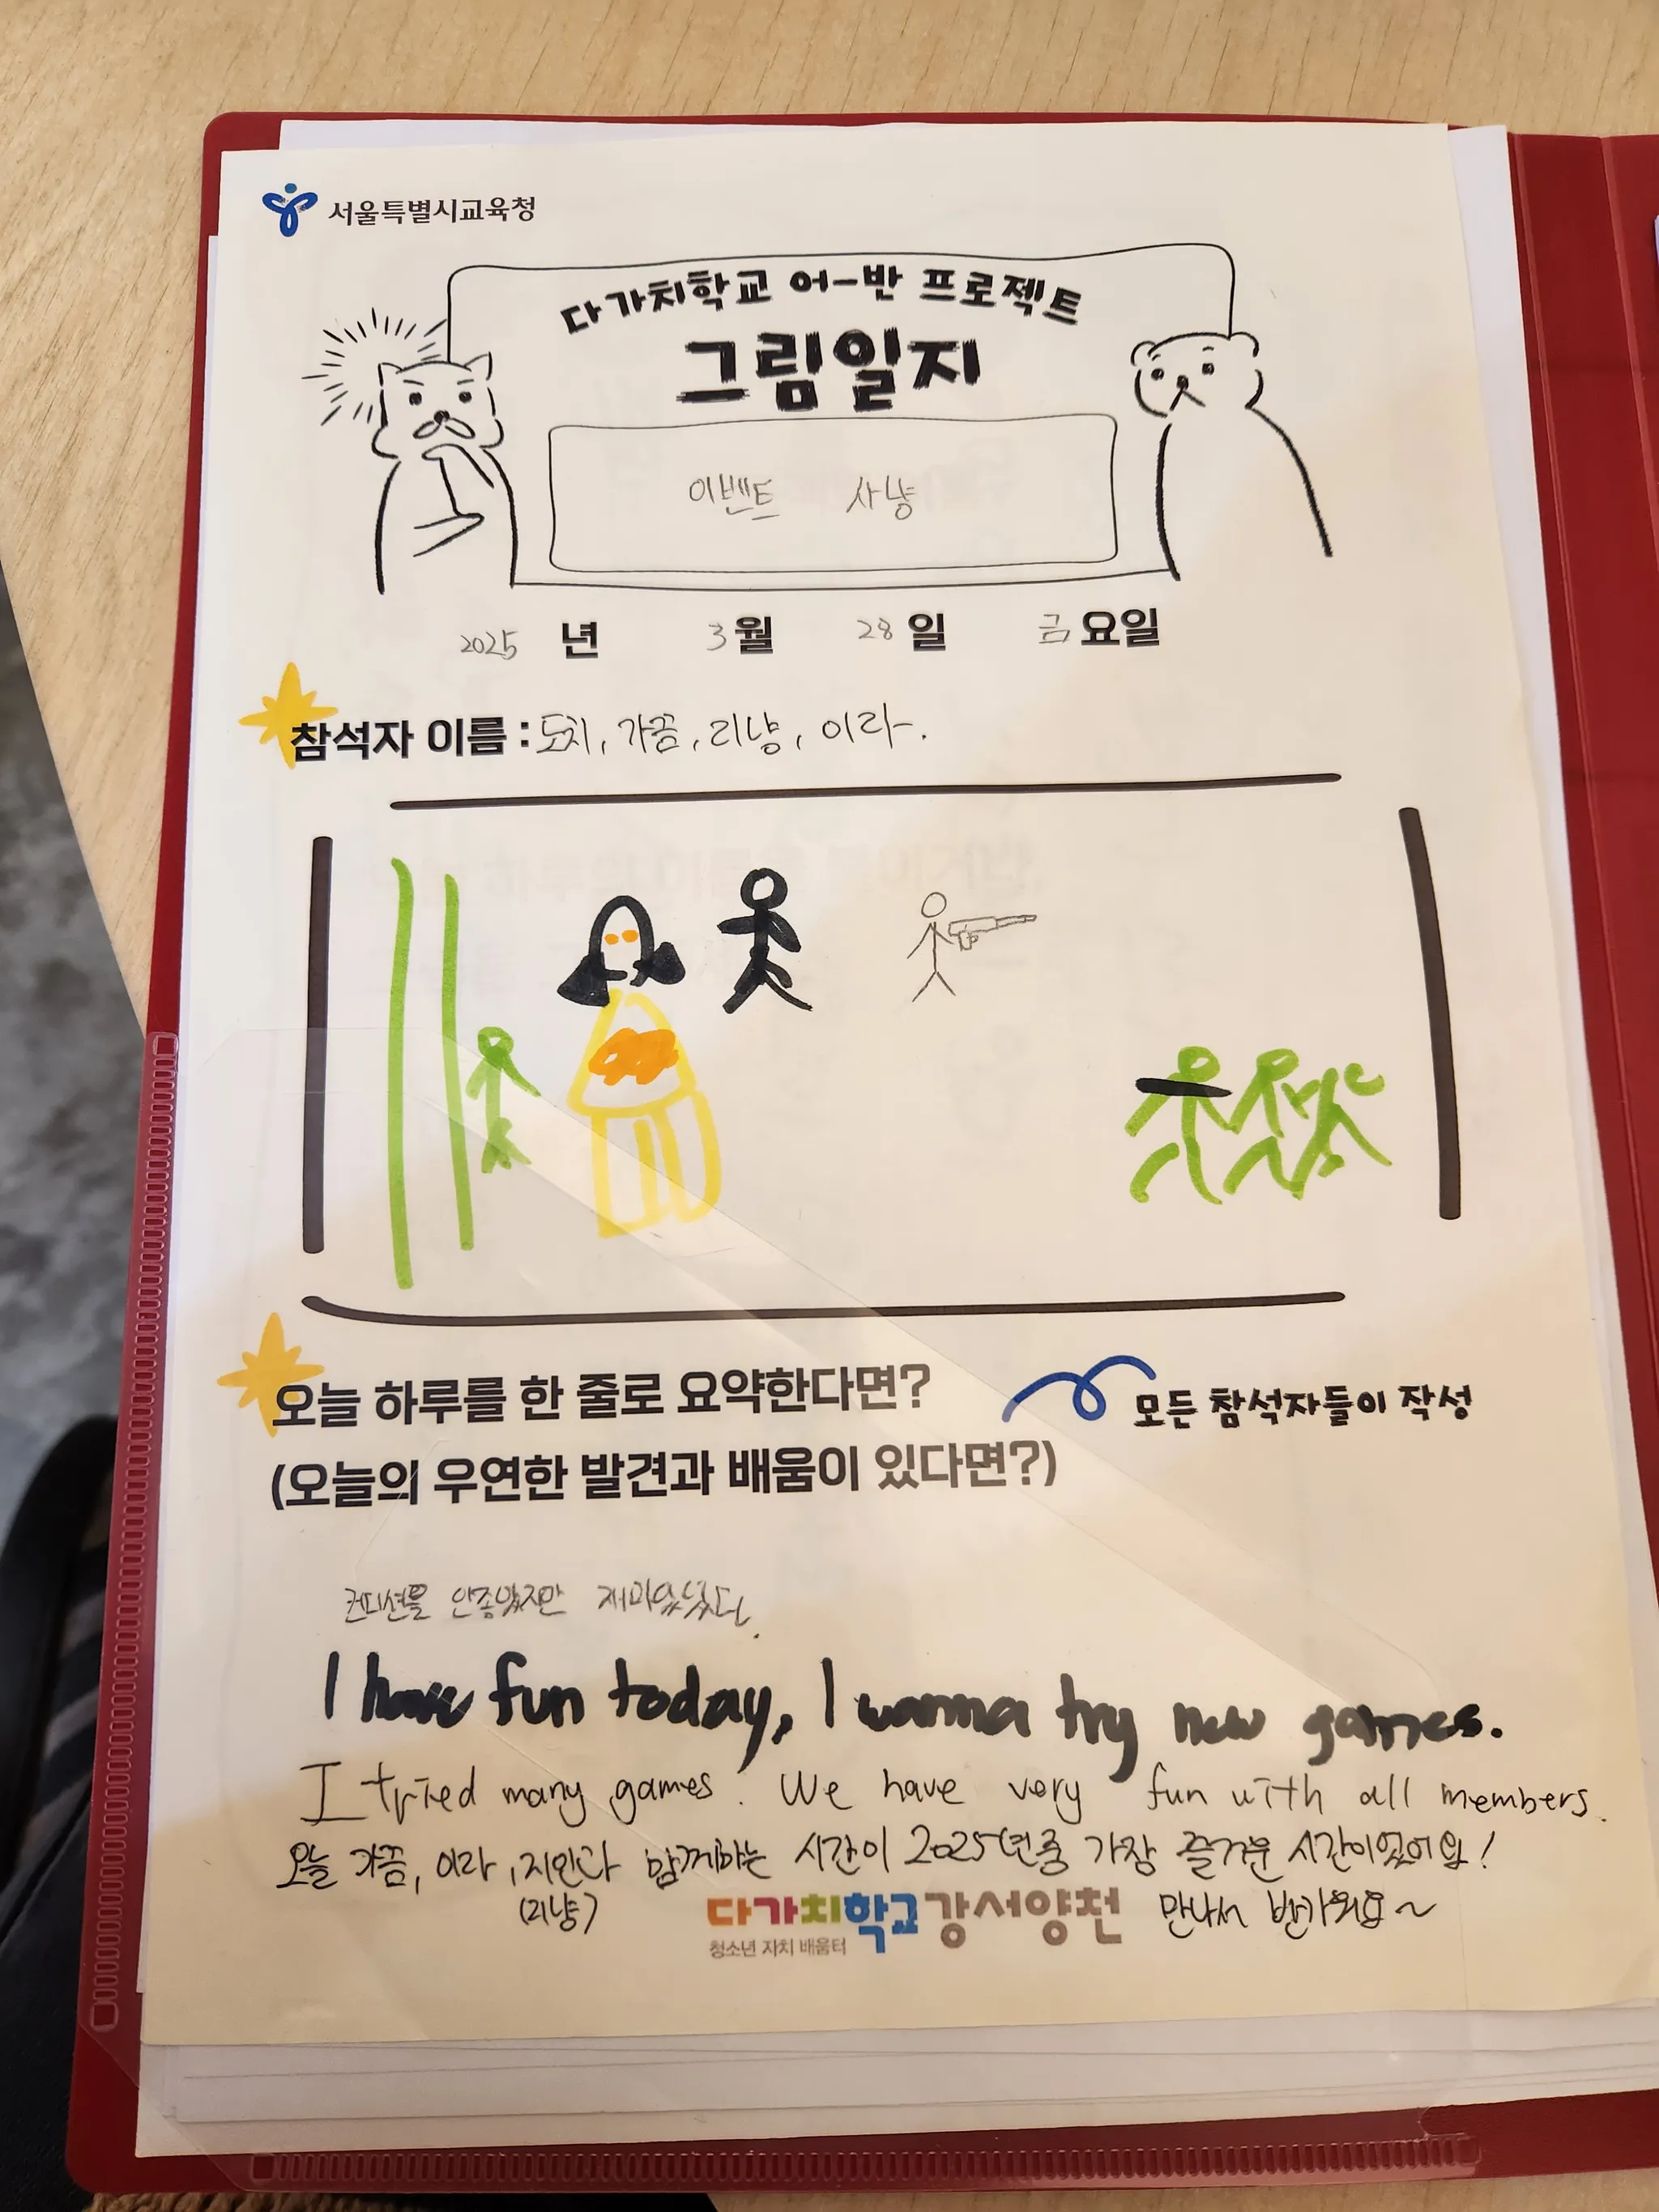 서울특별시교육청
다가치학교 어-반 프로젝트
그림일지
이벤트 사냥
2025 년 3월 28일 금요일
참석자 이름 : 도치, 가끔, 리냥, 이라.
오늘 하루를 한 줄로 요약한다면?
모든 참석자들이 작성
(오늘의 우연한 발견과 배움이 있다면?)
컨디션을 안좋았지만 재미있었다.
I have fun today, I wanna try new games.
I tried many games. We have very fun with all members.
오늘 가끔, 이라, 지인과 함께하는 시간이 2025년중 가장 즐거운 시간이었어요!
(리냥)
다가치학교 강서양천
만나서 반가워요~
청소년 자치 배움터